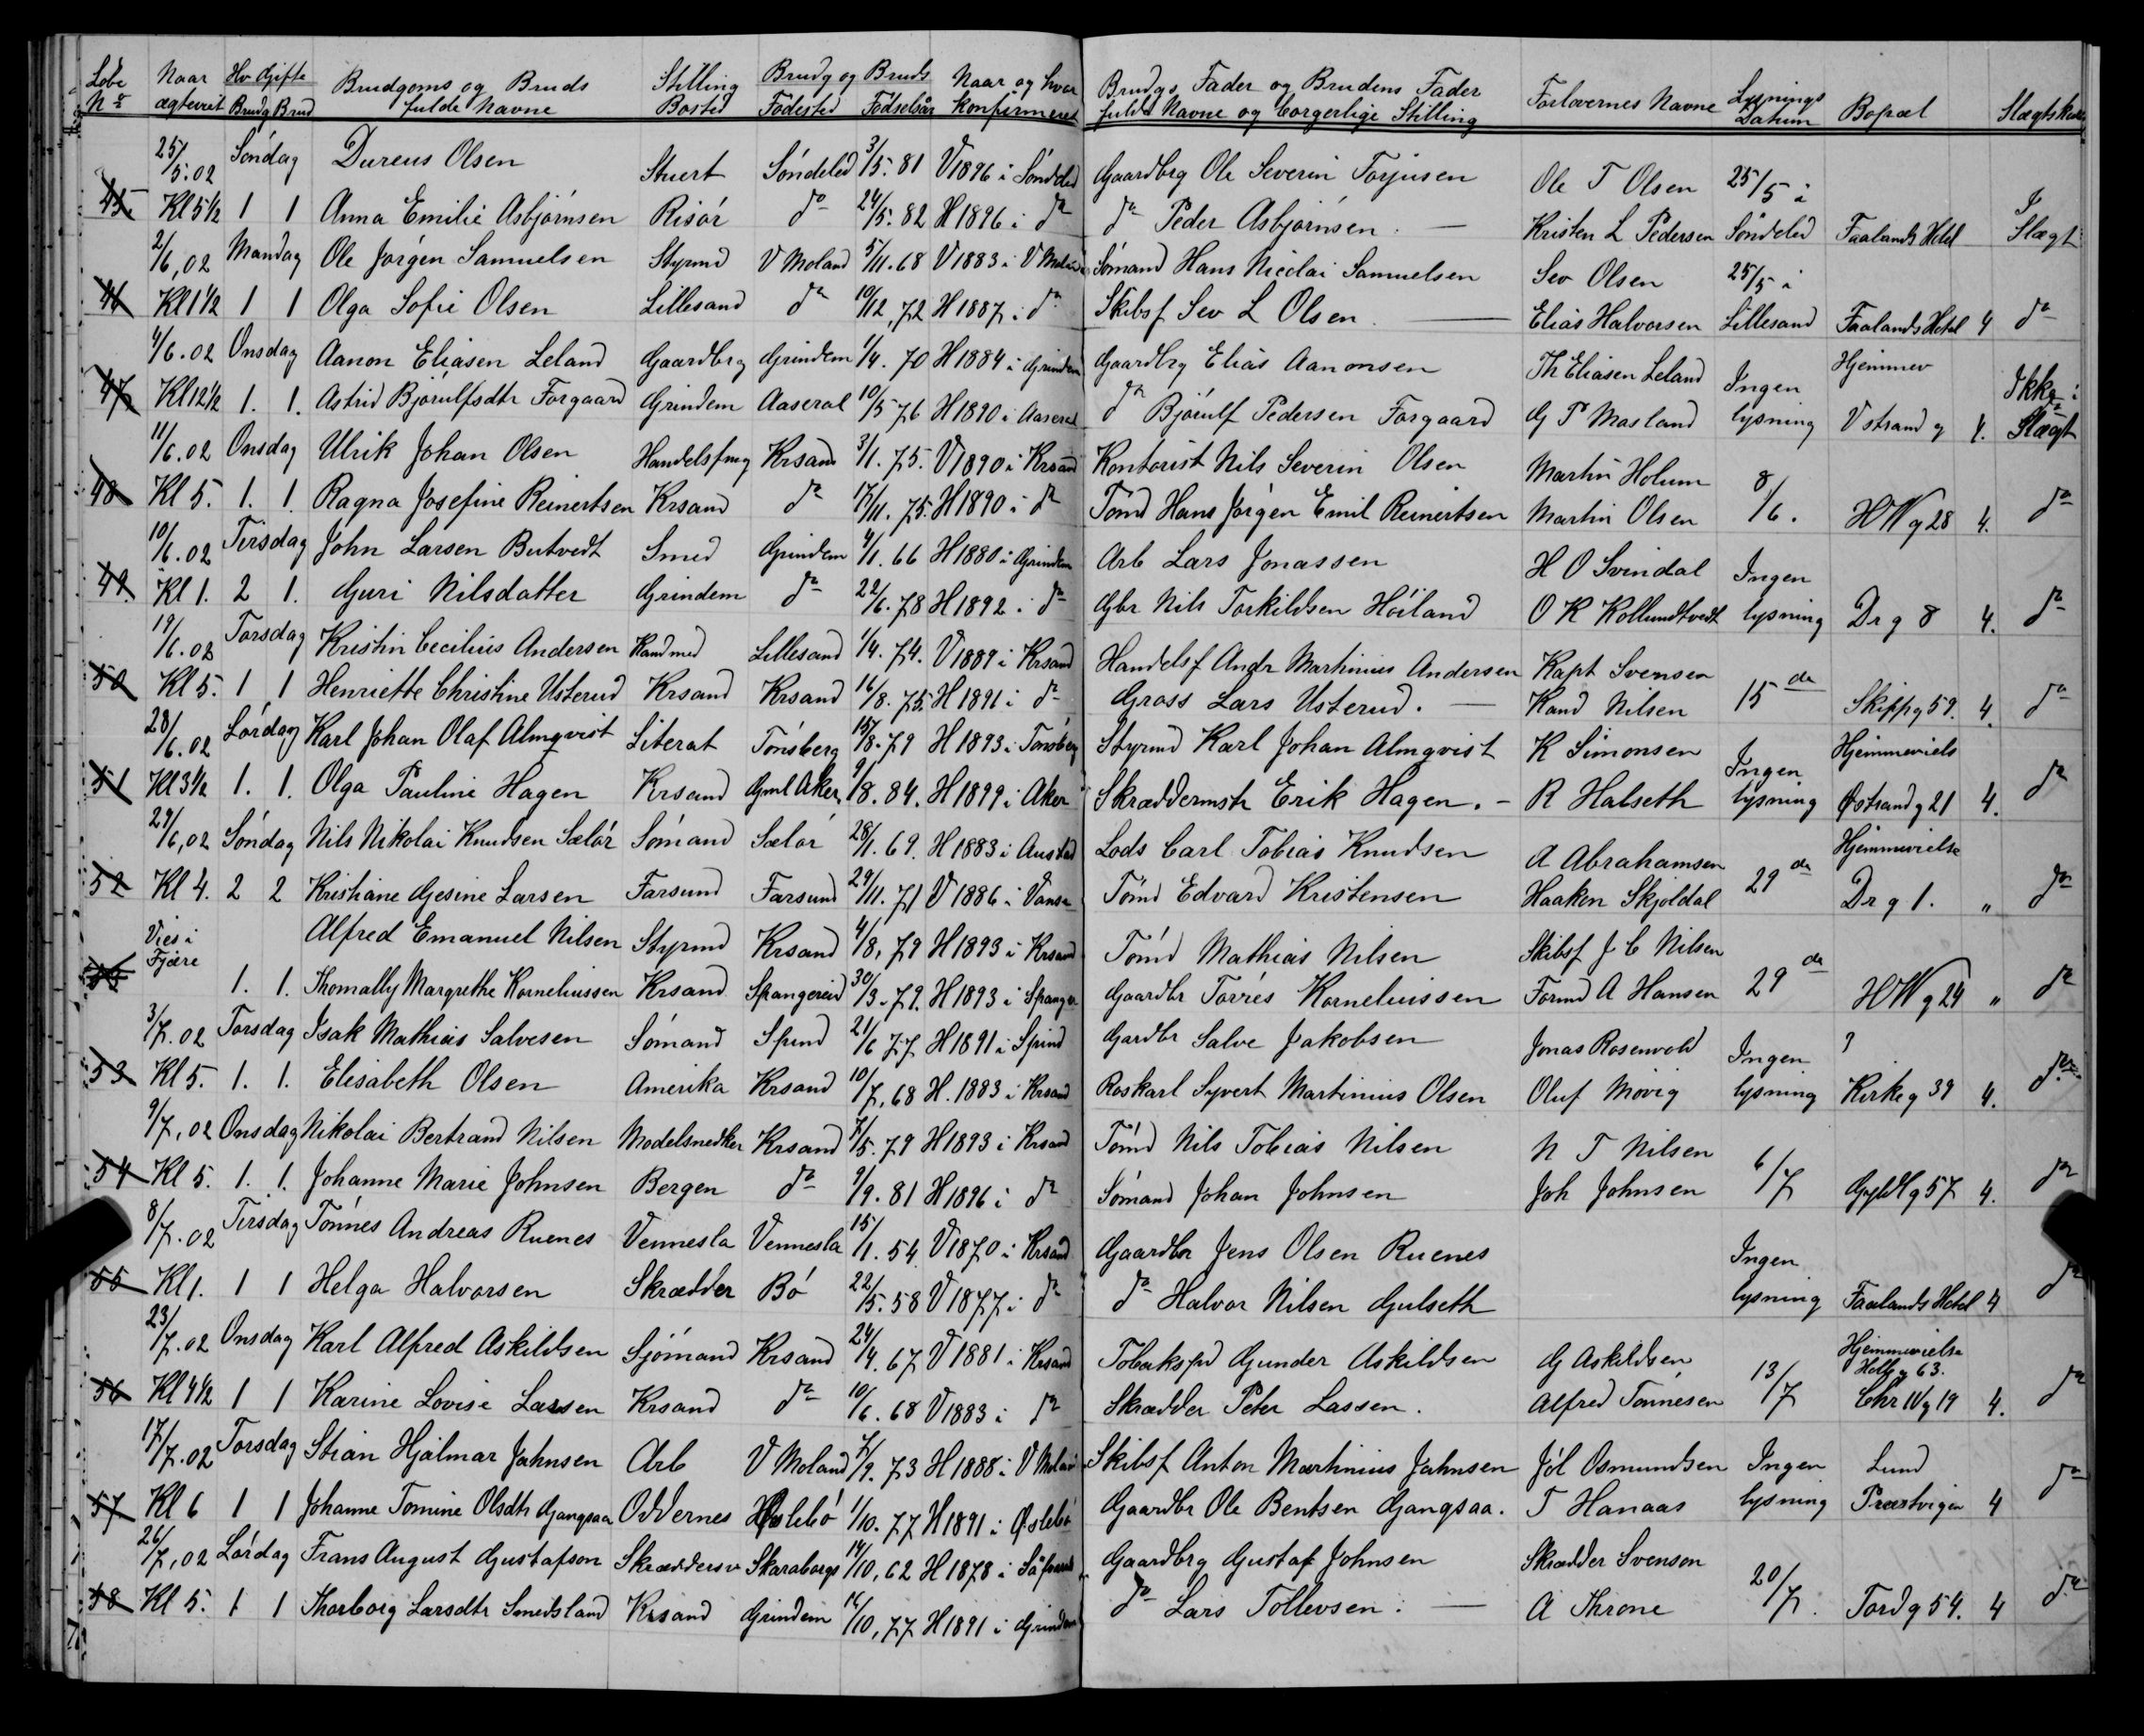 Løbe Naar Hv Gifte Brudgoms og Bruds Stilling Brudg og Bruds Naar og hvor Brudgs Fader og Brudens Fader Forlovernes Navne Lysnings Bopæl Slægtsk
No ægteviet Brudg Brud fulde Navne Bosted Fødested Fødselsår Konfirmeret fulde Navne og borgerlige Stilling Datum
25/5.02 Søndag Dureus Olsen Stuert Søndeled 3/5.81 V 1896 i Søndeled Gaardbrg Ole Severin Torjusen Ole T Olsen 25/5 i
45. Kl 5½ 1 1 Anna Emilie Asbjørnsen Risør do 24/5.82 H 1896 i do do Peder Asbjørnsen. — Kristen L Pedersen Søndeled Faalands Hotel I Slægt
2/6,02 Mandag Ole Jørgen Samuelsen Styrmd V Moland 5/11.68 V 1883 i V Moland Sømand Hans Nicolai Samuelsen Sev Olsen 25/5 i
46 Kl 1½ 1 1 Olga Sofie Olsen Lillesand do 10/12,72 H 1887 i do Skibsf Sev L Olsen. — Elias Halvorsen Lillesand Faalands Hotel 4 do
4/6.02 Onsdag Aanon Eliasen Leland Gaardbrg Grindem 1/4.70 H 1884 i Grindem Gaardbrg Elias Aanonsen Th Eliasen Leland Ingen Hjemmev Ikke i
47 Kl 12½ 1. 1. Astrid Bjørulfsdtr Forgaard Grindem Aaseral 10/5 76 H 1890 i Aaseral do Bjørulf Pedersen Forgaard G P Mosland lysning V strand g 4. Slægt
11/6.02 Onsdag Ulrik Johan Olsen Handelsfmg Krsand 3/1.75. V 1890 i Krsand Kontorist Nils Severin Olsen Martin Holum 8/6.
48 Kl 5. 1. 1. Ragna Josefine Reinertsen Krsand do 17/11.75. H 1890 i do Tømd Hans Jørgen Emil Reinertsen Martin Olsen H W g 28 4. do
10/6.02 Tirsdag John Larsen Butvedt Smed Grindem 4/1.66 H 1880 i Grindem Arb Lars Jonassen H O Svindal Ingen
49. Kl 1. 2 1. Guri Nilsdatter Grindem do 22/6.78 H 1892 i do Gbr Nils Torkildsen Høiland O K Kollundtvedt lysning Dr g 8 4. do
19/6.02 Torsdag Kristin Cecilius Andersen Kandmed Lillesand 1/4.74. V 1889 i Krsand Handelsf Andr Martinius Andersen Kapt Svensen
50 Kl 5. 1 1 Henriette Christine Usterud Krsand Krsand 16/8.75. H 1891 i do Gross Lars Usterud. — Kand Nilsen 15 de Skippg 59. 4. do
28/6.02 Lørdag Karl Johan Olaf Almqvist Literat Tønsberg 15/8.79 H 1893 i Tønsberg Styrmd Karl Johan Almqvist K Simonsen Ingen Hjemmeviels
51 Kl 3½ 1. 1. Olga Pauline Hagen Krsand Gml Aker 9/8.84. H 1899 i Aker Skræddermstr Erik Hagen. — R Halseth lysning Østrand g 21 4. do
29/6,02 Søndag Nils Nikolai Knudsen Sælør Sømand Sælør 28/1.69. H 1883 i Austad Lods Carl Tobias Knudsen A Abrahamsen Hjemmevielse
52 Kl 4. 2 2 Kristiane Gesine Larsen Farsund Farsund 29/11.71 V 1886 i Vanse Tømd Edvard Kristensen Haaken Skjoldal 29 de Dr g 1. " do
Vies i Fjære Alfred Emanuel Nilsen Styrmd Krsand 4/8,79 H 1893 i Krsand Tømd Mathias Nilsen Skibsf J C Nilsen
1. 1. Thomally Margrethe Korneliussen Krsand Spangereid 30/3.79. H 1893 i Spanger Gaardbr Torres Korneliussen Formd A Hansen 29 de H W g 24 " do
3/7.02 Torsdag Isak Mathias Salvesen Sømand Spind 21/6 77 H 1891 i Spind Gardbr Salve Jakobsen Jonas Rosenvold Ingen ?
53 Kl 5. 1. 1. Elisabeth Olsen Amerika Krsand 10/7,68 H. 1883 i Krsand Roskarl Syvert Martinius Olsen Oluf Møvig lysning Kirkeg 39 4. do
9/7,02 Onsdag Nikolai Bertrand Nilsen Modelsnedker Krsand 7/5.79 H 1893 i Krsand Tømd Nils Tobias Nilsen N T Nilsen 6/7
54 Kl 5. 1. 1. Johanne Marie Johnsen Bergen do 9/9.81 H 1896 i do Sømand Johan Johnsen Joh Johnsen Gyldl g 57 4. do
8/7.02 Tirsdag Tønnes Andreas Ruenes Vennesla Vennesla 15/1.54 V 1870 i Krsand Gaardbr Jens Olsen Ruenes Ingen
55 Kl 1. 1 1 Helga Halvorsen Skrædder Bø 22/5.58 V 1877 i do do Halvor Nilsen Gulseth lysning Faalands Hotel 4 do
23/7.02 Onsdag Karl Alfred Askildsen Sjømand Krsand 24/4.67 V 1881 i Krsand Tobakspd Gunder Askildsen G Askildsen 13/7 Hjemmevielse Holbg 63.
56 Kl 4½ 1 1 Karine Lovise Lassen Krsand do 10/6.68 V 1883 i do Skrædder Peter Lassen. Alfred Tønnesen Chr IV g 19 4. do
17/7.02 Torsdag Stian Hjalmar Jahnsen Arb V Moland 7/9.73 H 1888 i V Moland Skibsf Anton Martinius Jahnsen Jøl Osmundsen Ingen Lund
57 Kl 6 1 1 Johanne Tomine Olsdtr Gangsaa Oddernes Øslebø 1/10.77 H 1891 i Øslebø Gaardbr Ole Bentsen Gangsaa. T Hanaas lysning Præstvigen 4 do
26/7,02 Lørdag Frans August Gustafson Skræddersv Skaraborgs 14/10,62 H 1878 i Gaardbrg Gustaf Johnsen Skrædder Svenson 20/7.
58 Kl 5. 1 1 Thorborg Larsdtr Smedsland Krsand Grindem 16/10,77 H 1891 i Grindem do Lars Tollevsen. — A Throne Tord g 54. 4 do